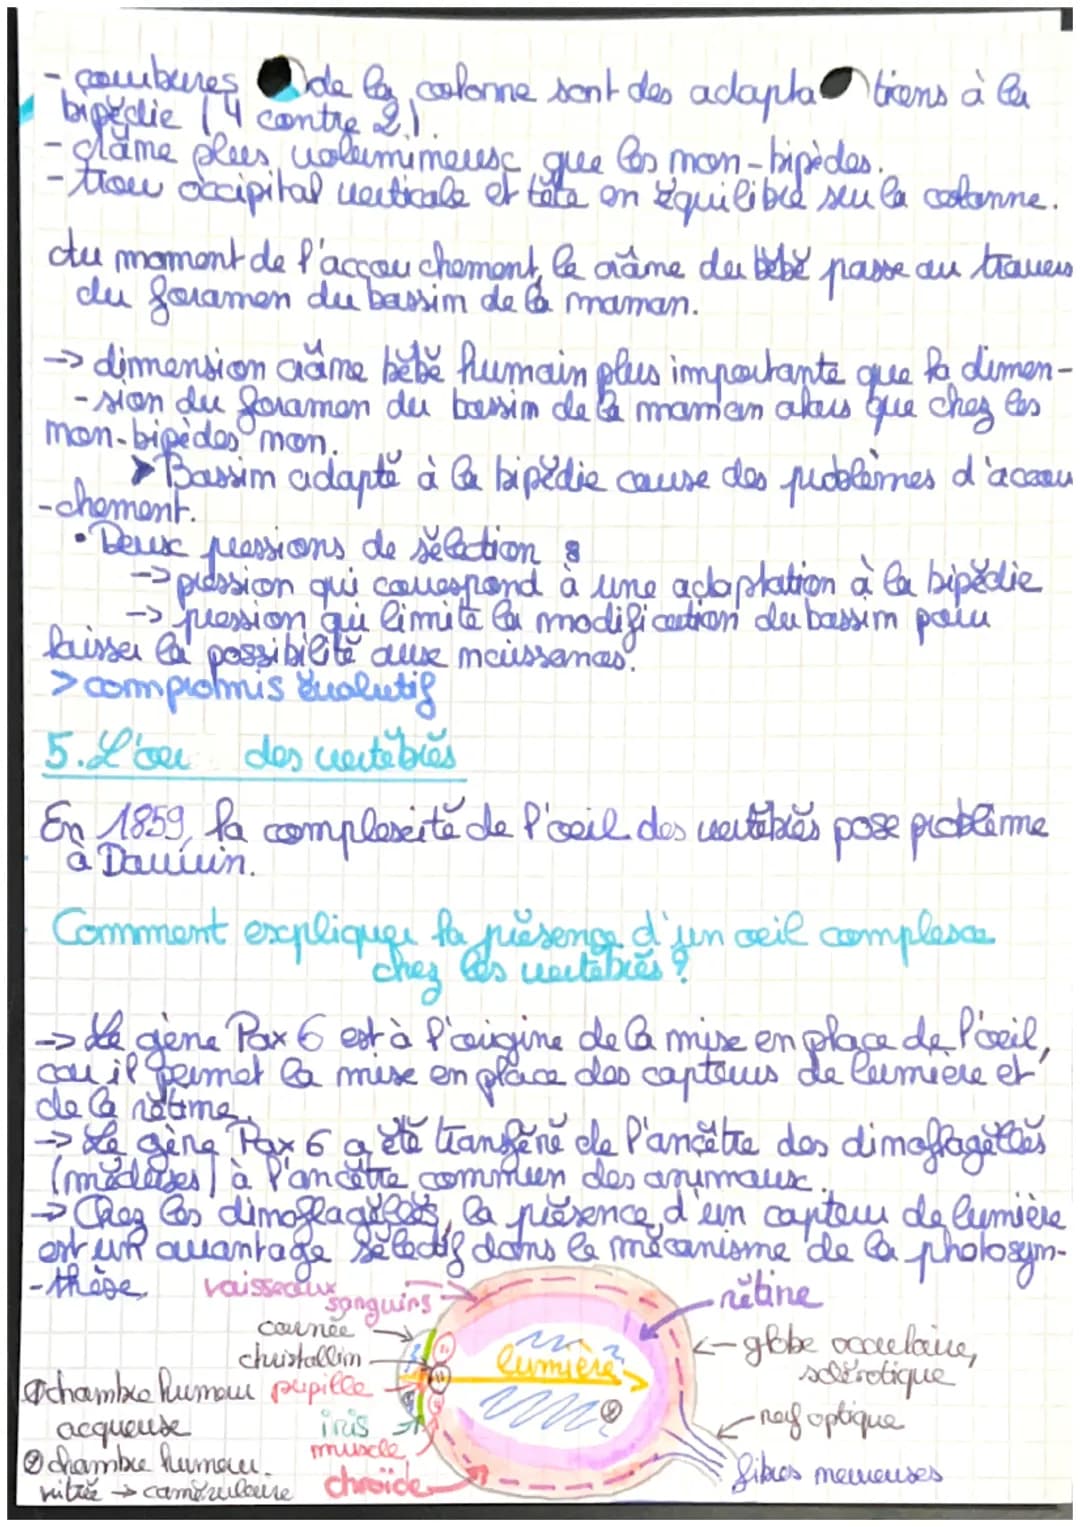 - courbures de la colonne sont des adapta tions à la
bipédie (4 contre 2).
- crâne plus volumineux que les non-bipèdes.
- trou occipital verticale et tête en équilibre sur la colonne.
Au moment de l'accouchement, le crâne du bébé passe au travers
du foramen du bassin de la maman.
-> dimension crâne bébé humain plus importante que la dimen-
-sion du foramen du bassin de la maman alors que chez les
non-bipèdes non.
➤ Bassin adapté à la bipédie cause des problèmes d'accou
-chement.
• Deux pressions de sélection :
-> pression qui correspond à une adaptation à la bipédie
-> pression qui limite la modification du bassin pour
laisser la possibilité aux naissances.
> compromis évolutif
5. L'oei des vertébrés
En 1859, la complexité de l'oeil des vertébrés pose problème
à Darwin.
Comment expliquer la présence d'un oeil complexe
chez les vertébrés ?
-> Le gène Pax 6 est à l'origine de la mise en place de l'oeil,
car il permet la mise en place des capteurs de lumière et
de la rétine.
-> Le gène Pax 6 a été transféré de l'ancêtre des dinoflagellés
(méduses) à l'ancêtre commun des animaux.
-> Chez les dinoflagellés, la présence d'un capteur de lumière
est un avantage sélectif dans le mécanisme de la photosyn-
-thèse.
vaisseaux
sanguins
rétine
cornée
christallin
lumière
globe occulaire,
sclérotique
① chambre humeur
acqueuse
pupille
iris
②
nerf optique
muscle
② chambre humeur
vitrée -> camérulaire
choroïde
fibres nerveuses